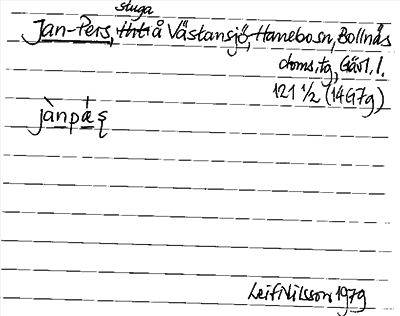 stuga
Jan-Pers, å Västansjö, Hanebo sn, Bollnäs
doms. tg, Gävl. l.
121 1/2 (14G7g)
jànpæ̀ʂ
Leif Nilsson 1979